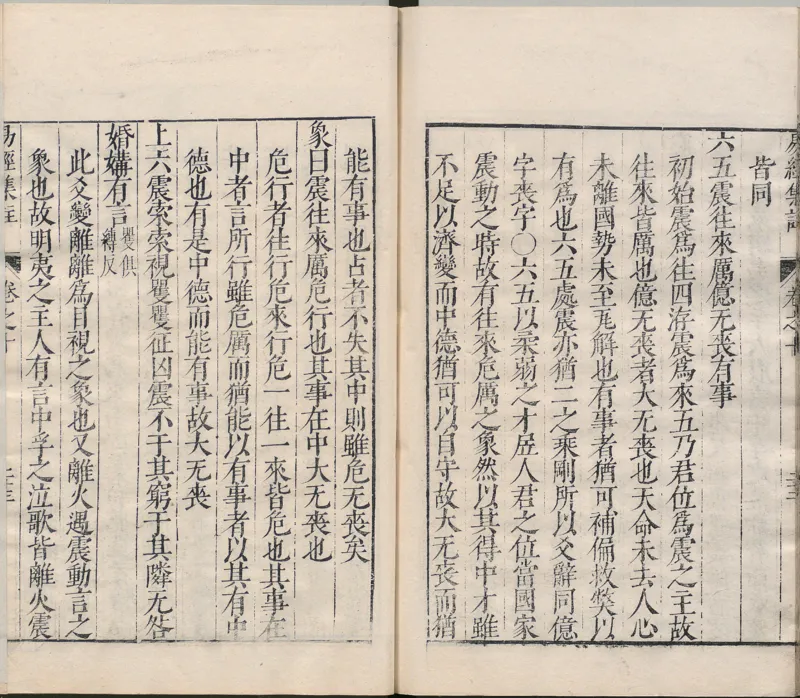 皆同
六五震往來厲億无喪有事
初始震爲往四洊震爲來五乃君位爲震之主故
往來皆厲也億无喪者大无喪也天命未去人心
未離國勢未至瓦解也有事者猶可補偏救獘以
有爲也六五處震亦猶二之乘剛所以爻辭同億
字喪字〇六五以柔弱之才居人君之位當國家
震動之時故有往來危厲之象然以其得中才雖
不足以濟變而中德猶可以自守故大无喪而猶
能有事也占者不失其中則雖危无喪矣
象曰震往來厲危行也其事在中大无喪也
危行者往行危來行危一往一來皆危也其事在
中者言所行雖危厲而猶能以有事者以其有中
德也有是中德而能有事故大无喪
上六震索索視矍矍征凶震不于其躬于其隣无咎
婚媾有言矍俱縛反
此爻變離離爲目視之象也又離火遇震動言之
象也故明夷之主人有言中孚之泣歌皆離火震
易經集註 卷之十